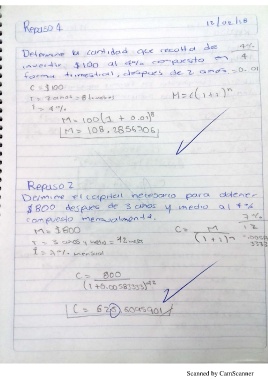 Repaso 1
12/02/18
Determine la cantidad que resulta de
invertir $100 al 4% compuesto en
forma trimestral, después de 2 años
4%
4
= 0.01
C = $100
M = C(1+i)ⁿ
M = 100(1 + 0.01)⁸
M = 108.2856706
Repaso 2
Determine el capital necesario para obtener
$800 después de 3 años y medio al 7%
compuesto mensualmente.
M = $800
C = M
(1+i)ⁿ
7%
C = 800
(1+0.00583333)⁴²
Scanned by CamScanner